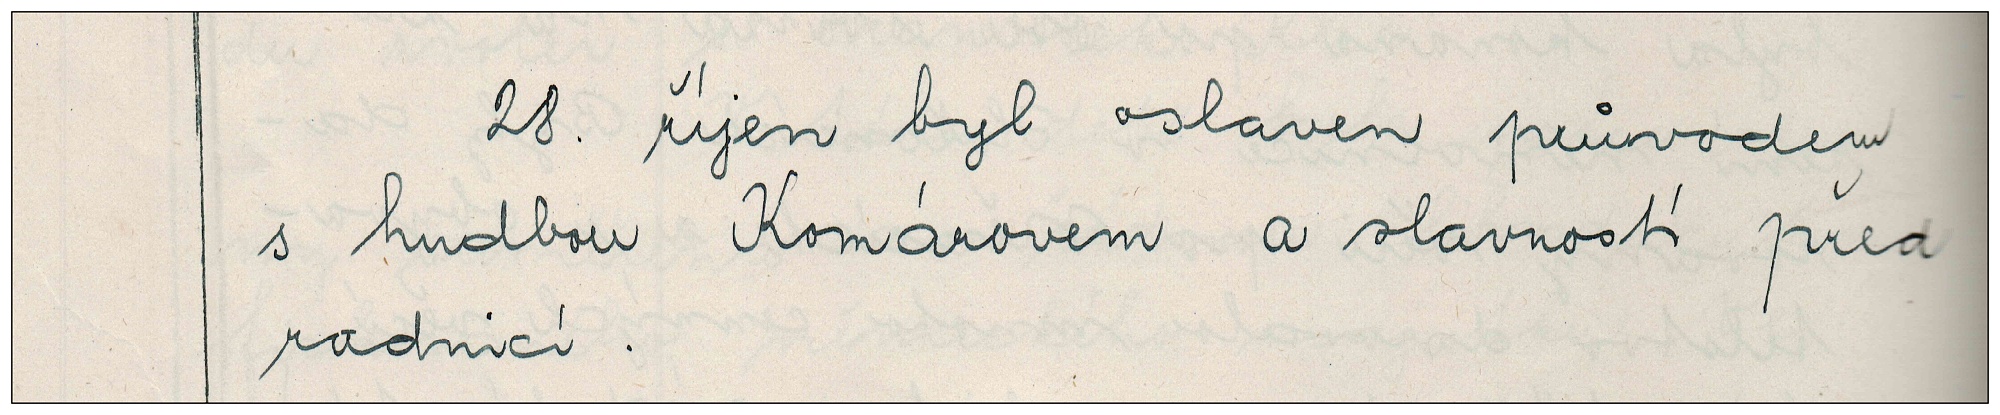 28. říjen byl oslaven průvodem
s hudbou Komárovem a slavností před
radnicí.